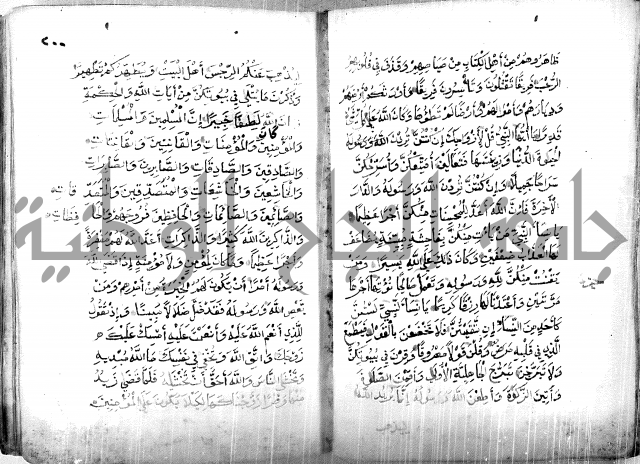 ظاهروهم من أهل الكتاب من صياصيهم وقذف في قلوبهم
الرعب فريقا تقتلون وتأسرون فريقا وأورثكم أرضهم
وديارهم وأموالهم وأرضا لم تطؤها وكان الله على كل شيء
قديرا يا أيها النبي قل لأزواجك إن كنتن تردن
الحيوة الدنيا وزينتها فتعالين أمتعكن وأسرحكن
سراحا جميلا وإن كنتن تردن الله ورسوله والدار
الآخرة فإن الله أعد للمحسنات منكن أجرا عظيما
يا نساء النبي من يأت منكن بفاحشة مبينة يضاعف
لها العذاب ضعفين وكان ذلك على الله يسيرا ومن
يقنت منكن لله ورسوله وتعمل صالحا نؤتها أجرها
مرتين وأعتدنا لها رزقا كريما يا نساء النبي لستن
كأحد من النساء إن اتقيتن فلا تخضعن بالقول فيطمع
الذي في قلبه مرض وقلن قولا معروفا وقرن في بيوتكن
ولا تبرجن تبرج الجاهلية الأولى وأقمن الصلوة
وآتين الزكوة وأطعن الله ورسوله إنما يريد الله
ليذهب
٢٠٠
ليذهب عنكم الرجس أهل البيت ويطهركم تطهيرا
واذكرن ما يتلى في بيوتكن من آيات الله والحكمة
إن الله كان لطيفا خبيرا إن المسلمين والمسلمات
والمؤمنين والمؤمنات والقانتين والقانتات
والصادقين والصادقات والصابرين والصابرات
والخاشعين والخاشعات والمتصدقين والمتصدقات
والصائمين والصائمات والحافظين فروجهم والحافظات
والذاكرين الله كثيرا والذاكرات أعد الله لهم مغفرة
وأجرا عظيما وما كان لمؤمن ولا مؤمنة إذا قضى الله
ورسوله أمرا أن يكون لهم الخيرة من أمرهم ومن
يعص الله ورسوله فقد ضل ضلالا مبينا وإذ تقول
للذي أنعم الله عليه وأنعمت عليه أمسك عليك
زوجك واتق الله وتخفي في نفسك ما الله مبديه
وتخشى الناس والله أحق أن تخشاه فلما قضى زيد
منها وطرا زوجناكها لكيلا يكون على المؤمنين
جامعة النجاح الوطنية